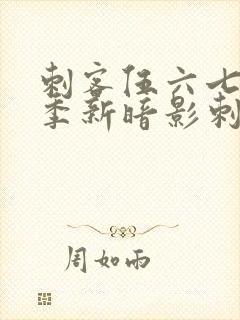 刺客伍六七
季新暗影刺
周如雨